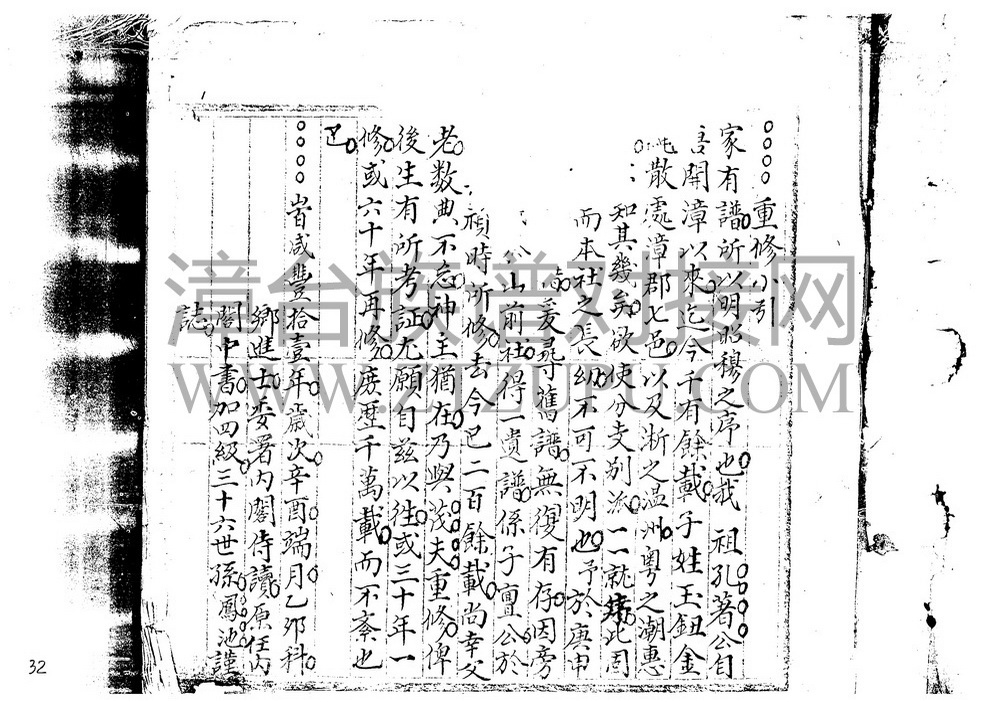 重修小引
家有譜所以明昭穆之序也我 祖孔著公自
唐開漳以來迄今千有餘載子姓玉鈕金
散處漳郡七邑以及浙之温州粤之潮惠
知其幾矣欲使分支别派一一就緒此固
而本社之長幼不可不明也予於庚申
爰尋舊譜無復有存因旁
山前社得一遺譜係子亶公於
禎時所修去今已二百餘載尚幸父
老数典不忘神主猶在乃與茂夫重修俾
後生有所考証尤願自兹以往或三十年一
修或六十年再修庶歷千萬載而不紊也
已
旹咸豐拾壹年歲次辛酉端月乙卯科
鄉進士委署内閣侍讀原任内
閣中書加四級三十六世孫鳳池謹
誌
漳台族譜对接网
WWW.ZTZUPU.COM
32